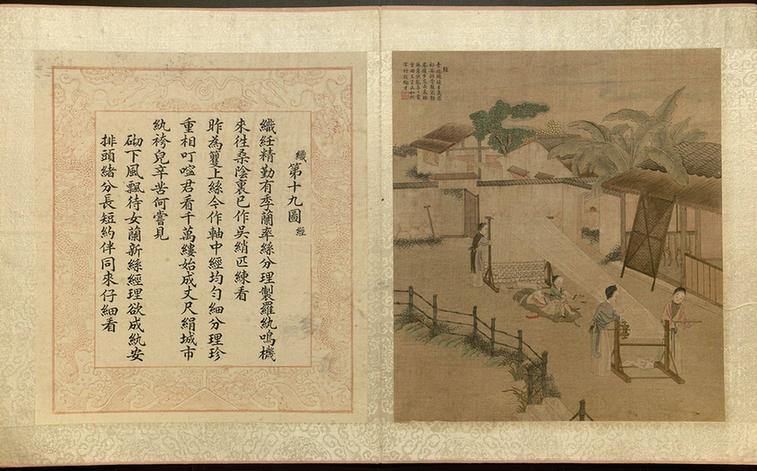 織第十九圖 經
織絍精勤有季蘭率絲分理製羅紈鳴機
來往桑陰裏已作吳綃匹練看
昨為籰上絲今作軸中經均勻細分理珍
重相叮嚀君看千萬縷始成丈尺絹城市
紈袴兒辛苦何嘗見
砌下風飄待女蘭新絲經理欲成紈安
排頭緒分長短約伴同來仔細看
經